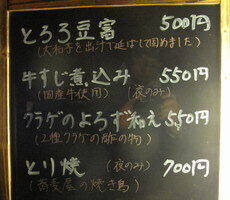 とろろ豆富 500円
(大和芋を出汁で延ばして固めました)
牛すじ煮込み 550円
(国産牛使用) (夜のみ)
クラゲのよろず和え 550円
(2種クラゲの酢の物)
とり焼 (夜のみ) 700円
(蕎麦屋の焼き鳥)